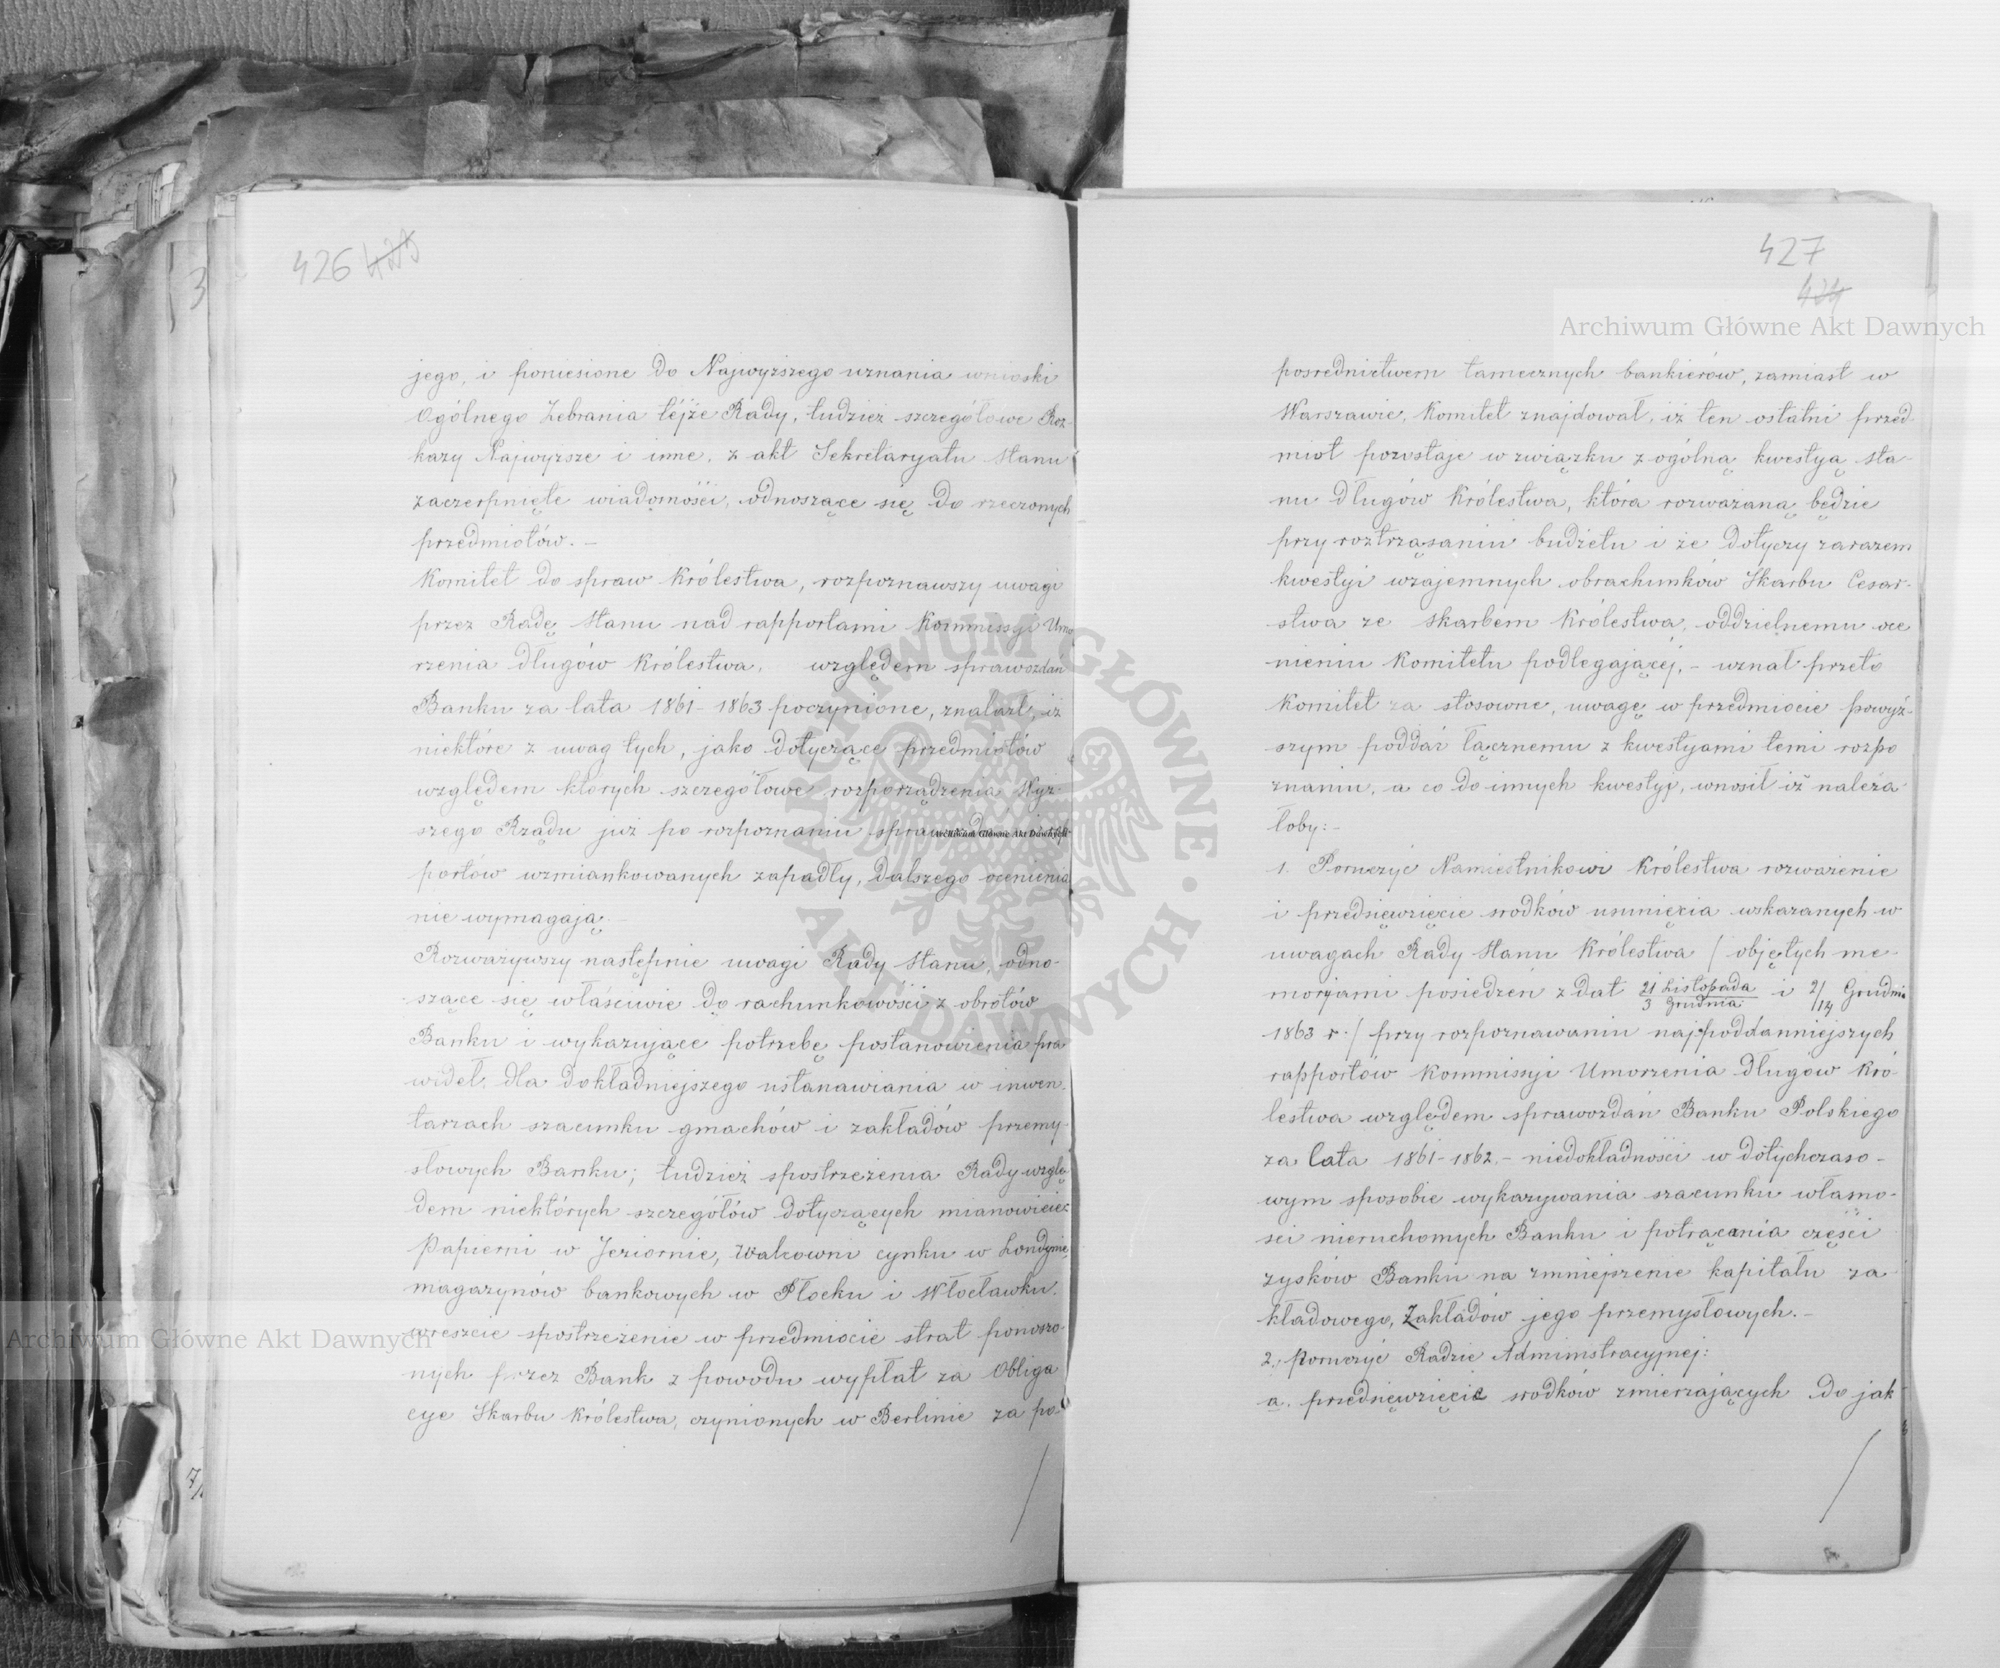 426
jego, i poniesione do Najwyższego uznania wnioski
Ogólnego Zebrania téjże Rady, tudzież szczegółowe Roz-
kazy Najwyższe i inne, z akt Sekretaryatu Stanu
zaczerpnięte wiadomości, odnoszące się do rzeczonych
przedmiotów. –
Komitet do spraw Królestwa, rozpoznawszy uwagi
przez Radę Stanu nad rapportami Kommissyi Umo
rzenia długów Królestwa, względem sprawozdań
Banku za lata 1861 – 1863 poczynione, znalazł, iż
niektóre z uwag tych, jako dotyczące przedmiotów
względem których szczegółowe rozporządzenia Wyż-
szego Rządu już po rozpoznaniu
portów wzmiankowanych zapadły, dalszego ocenienia
nie wymagają. –
Rozważywszy następnie uwagi Rady Stanu, odno-
szące się właściwie do rachunkowości z obrotów
Banku i wykazujące potrzebę postanowienia pra
wideł, dla dokładniejszego ustanawiania w inwen-
tarzach szacunku gmachów i zakładów przemy-
słowych Banku; tudzież spostrzeżenia Rady wzglę-
dem niektórych szczegółów dotyczących mianowicie:
Papierni w Jeziornie, Walcowni cynku w Londynie,
magazynów bankowych w Płocku i Włocławku,
wreszcie spostrzeżenie w przedmiocie strat ponoszo-
nych przez Bank z powodu wypłat za Obliga
cye Skarbu Królestwa, czynionych w Berlinie za po-
427
424
pośrednictwem tamecznych bankierów, zamiast w
Warszawie, Komitet znajdował, iż ten ostatni przed-
miot pozostaje w związku z ogólną kwestyą sta-
nu długów Królestwa, która rozważaną będzie
przy roztrząsaniu budżetu i że dotyczy zarazem
kwestyi wzajemnych obrachunków Skarbu Cesar-
stwa ze skarbem Królestwa, oddzielnemu oce
nieniu Komitetu podlegającéj, – uznał przeto
Komitet za stosowne, uwagę w przedmiocie powyż-
szym poddać łącznemu z kwestyami temi rozpo
znaniu, a co do innych kwestyj, wnosił iż należa-
łoby: –
1. Poruczyć Namiestnikowi Królestwa rozważenie
i przedsięwzięcie środków usunięcia wskazanych w
uwagach Rady Stanu Królestwa / objętych me-
moryami posiedzeń z dat 21 Listopada / 3 Grudnia i 2/14 Grudnia
1863 r. / przy rozpoznawaniu najpoddanniejszych
rapportów Kommissyi Umorzenia długów Kró-
lestwa względem sprawozdań Banku Polskiego
za lata 1861 – 1862. – niedokładności w dotychczaso-
wym sposobie wykazywania szacunku własno-
ści nieruchomych Banku i potrącania części
zysków Banku na zmniejszenie kapitału za-
kładowego, Zakładów jego przemysłowych. –
2. Poruczyć Radzie Administracyjnej:
a. przedsięwzięcie środków zmierzających do jak
Archiwum Główne Akt Dawnych
Archiwum Główne Akt Dawnych
Archiwum Główne Akt Dawnych
ARCHIWUM GŁÓWNE • AKT DAWNYCH •